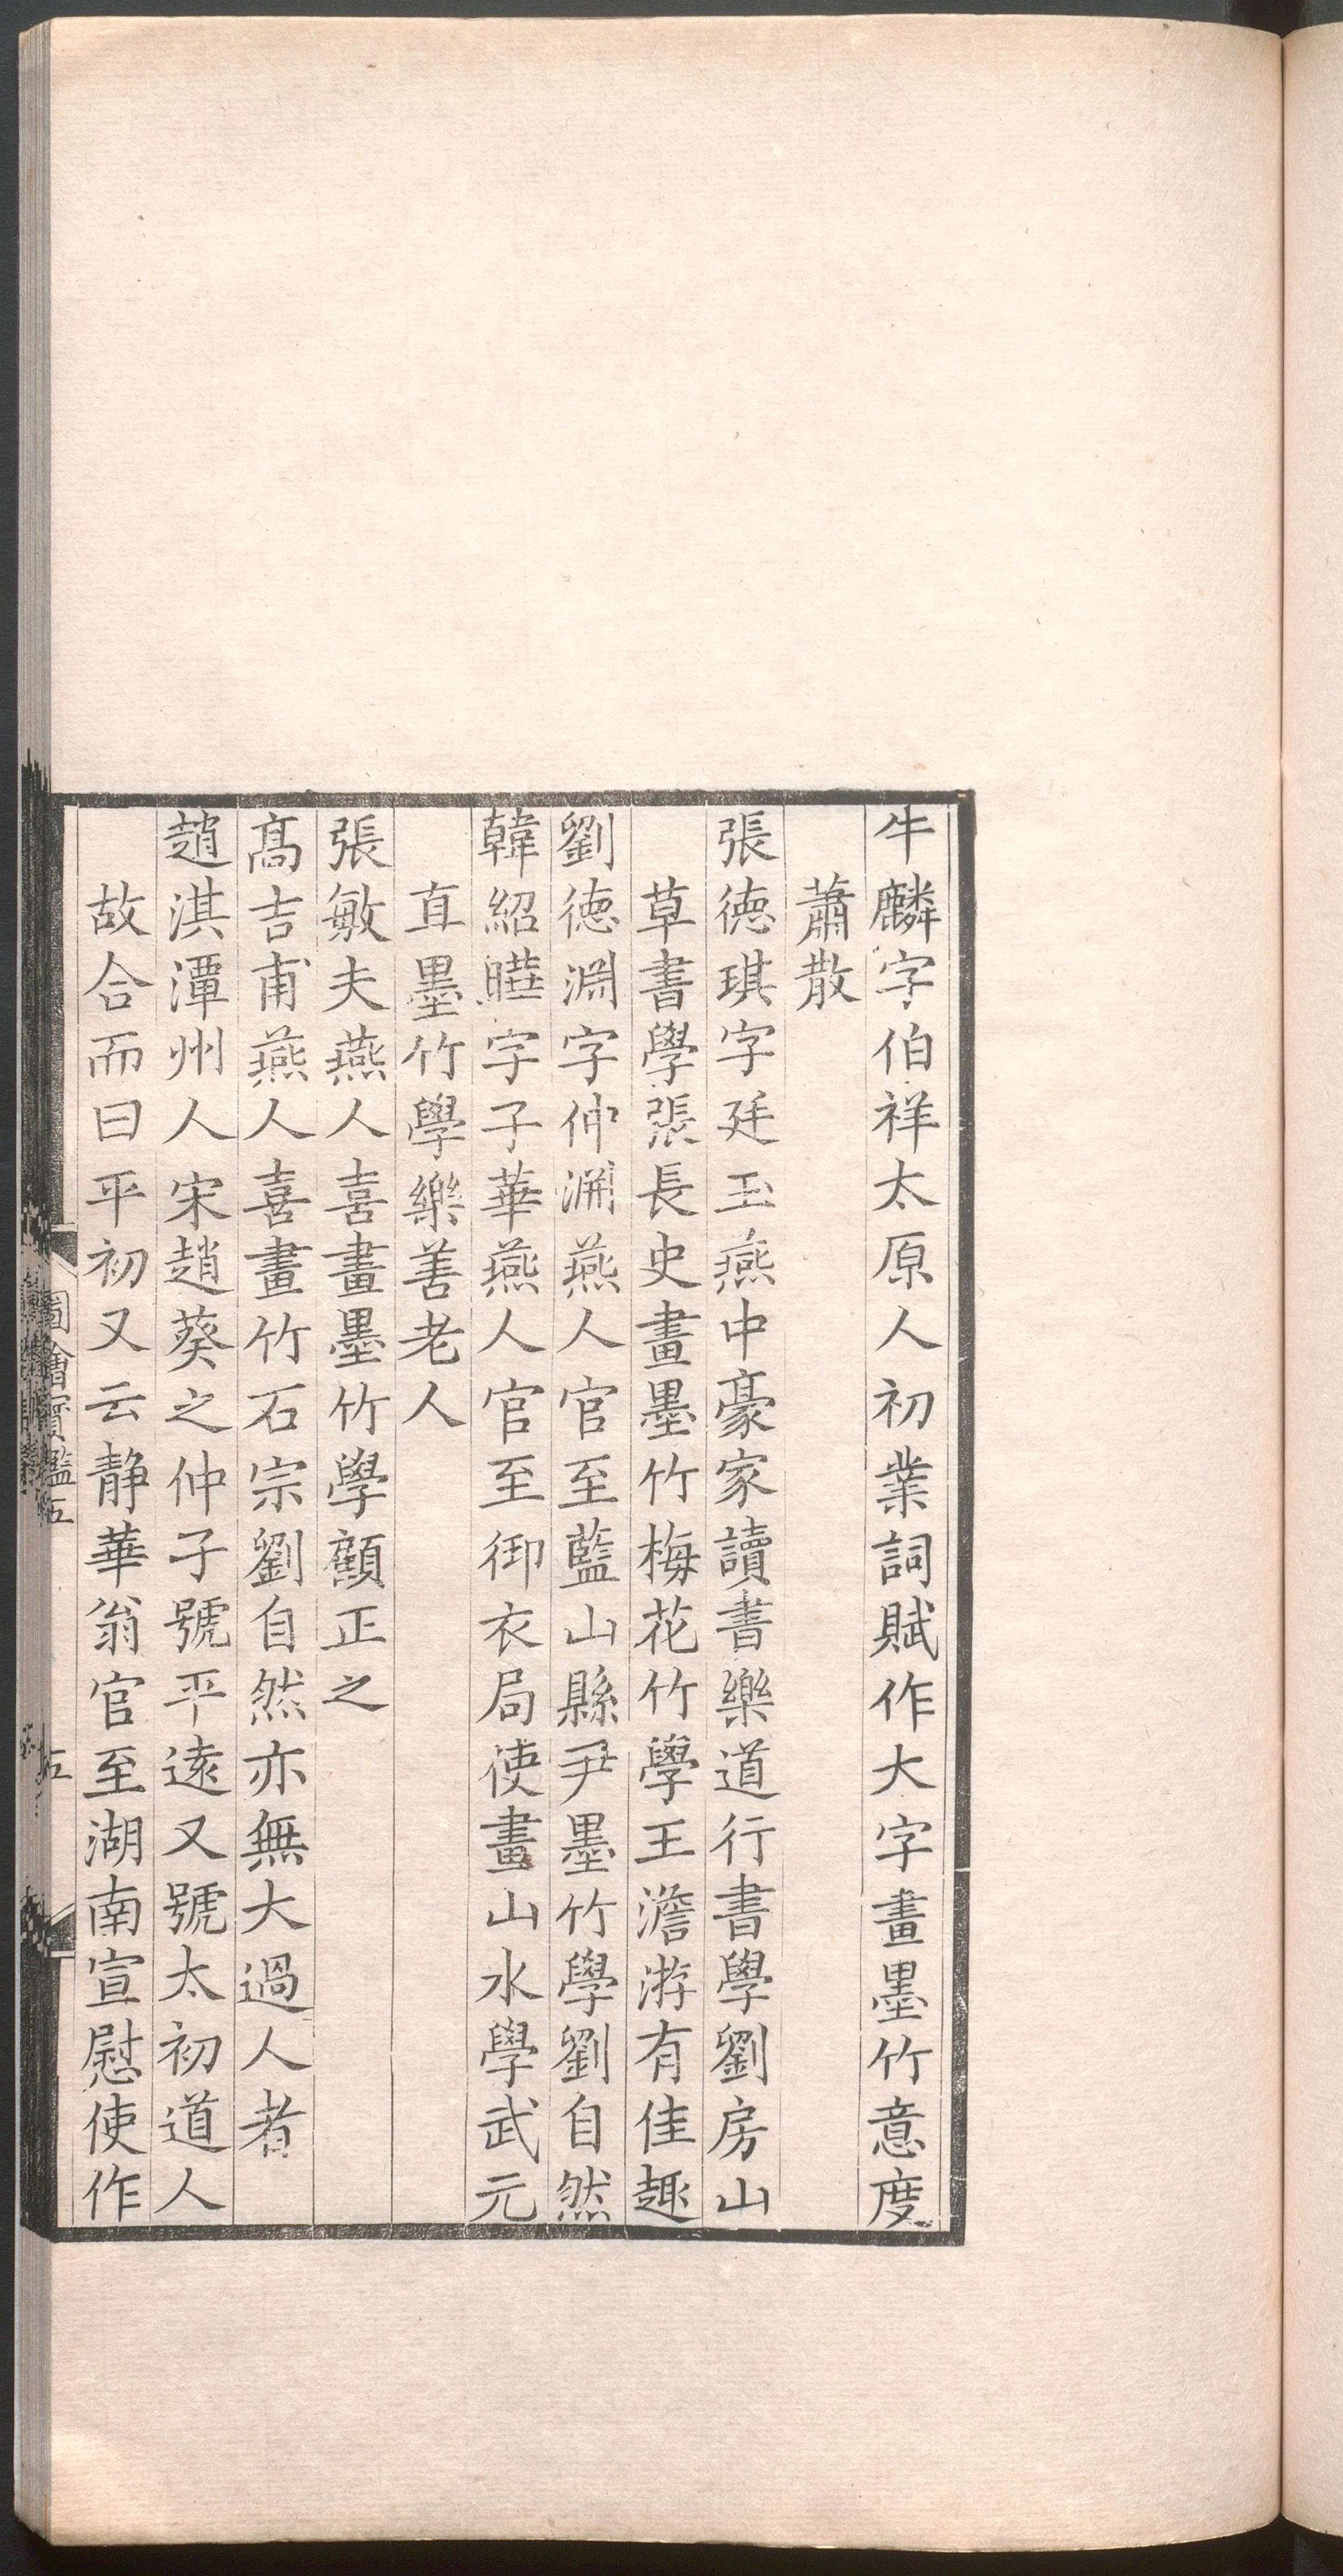 牛麟字伯祥太原人初業詞賦作大字畫墨竹意度
蕭散
張德琪字廷玉燕中豪家讀書樂道行書學劉房山
草書學張長史畫墨竹梅花竹學王澹游有佳趣
劉德淵字仲淵燕人官至藍山縣尹墨竹學劉自然
韓紹曄字子華燕人官至御衣局使畫山水學武元
直墨竹學樂善老人
張敏夫燕人喜畫墨竹學顧正之
髙吉甫燕人喜畫竹石宗劉自然亦無大過人者
趙淇潭州人宋趙葵之仲子號平遠又號太初道人
故合而曰平初又云静華翁官至湖南宣慰使作
圖繪寶鑑五